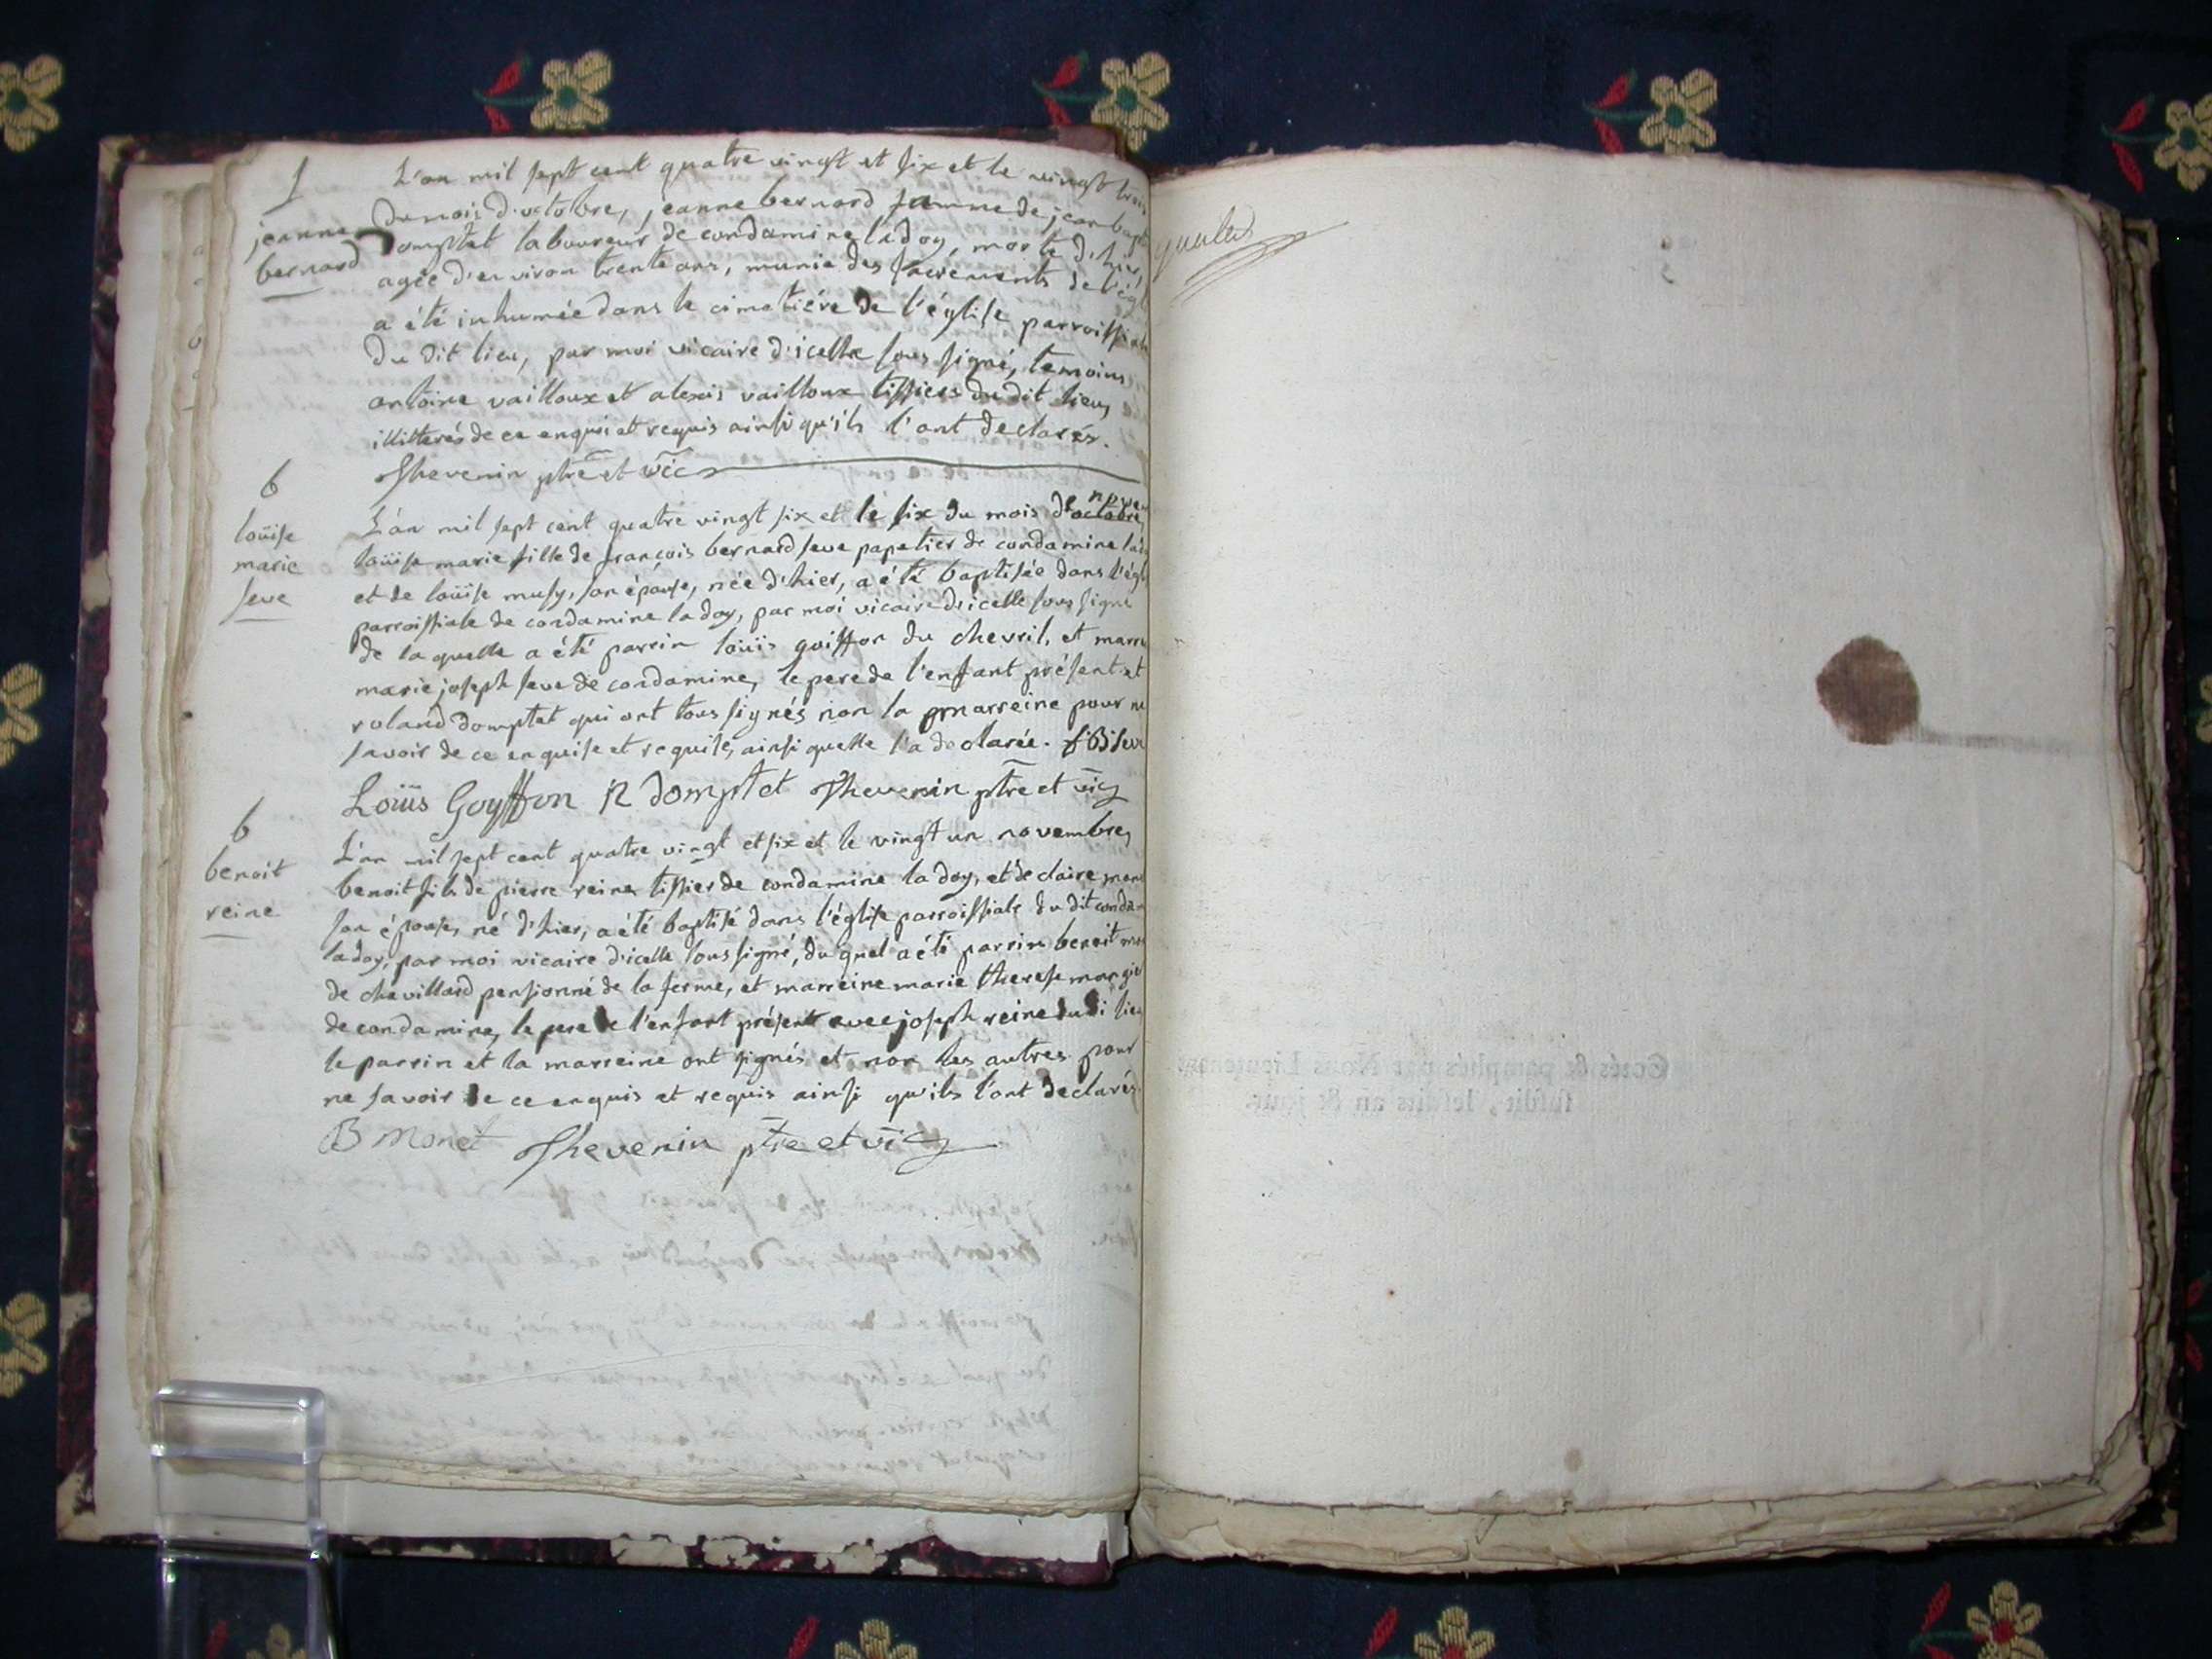 S
L'an mil sept cent quatre vingt et six et le vingt trois
jeanne
bernard
du mois d'octobre, jeanne bernard femme de jean bapt
domptet laboureur de condamine la doy, morte d'hier,
agée d'environ trente ans, munie des sacrements de l'égl
a été inhumée dans le cimetiére de l'église parroissiale
du dit lieu, par moi vicaire d'icelle sous signé, temoins
antoine vailloux et alexis vailloux tissiers du dit lieu,
illiterés de ce enquis et requis ainsi qu'ils l'ont declarés.
Thevenin ptre et vic
b
loüise
marie
seve
L'an mil sept cent quatre vingt six et le six du mois de novem
loüise marie fille de françois bernard seve papetier de condamine la d
et de loüise musy, son épouse, née d'hier, a été baptisée dans l'égl
parroissiale de condamine la doy, par moi vicaire d'icelle sous signé
de laquelle a été parrin loüis goiffon du chevril, et marr
marie joseph seve de condamine, le pere de l'enfant présent et
roland domptet qui ont tous signés non la marreine pour ne
savoir de ce enquise et requise, ainsi quelle l'a declarée. f B Seve
Loüis Goyffon R domptet Thevenin ptre et vic
b
benoit
reine
L'an mil sept cent quatre vingt et six et le vingt un novembre,
benoit fils de pierre reine tissier de condamine la doy, et de claire mon
son épouse, né d'hier, a été baptisé dans l'église parroissiale du dit condam
la doy, par moi vicaire d'icelle sous signé, du quel a été parrin benoit mon
de chevillard pensionné de la ferme, et marreine marie therese
de condamine, le pere de l'enfant présent avec joseph reine du di lieu
le parrin et la marreine ont signés et non les autres pour
ne savoir de ce enquis et requis ainsi qu'ils l'ont declarés.
B monet Thevenin ptre et vic